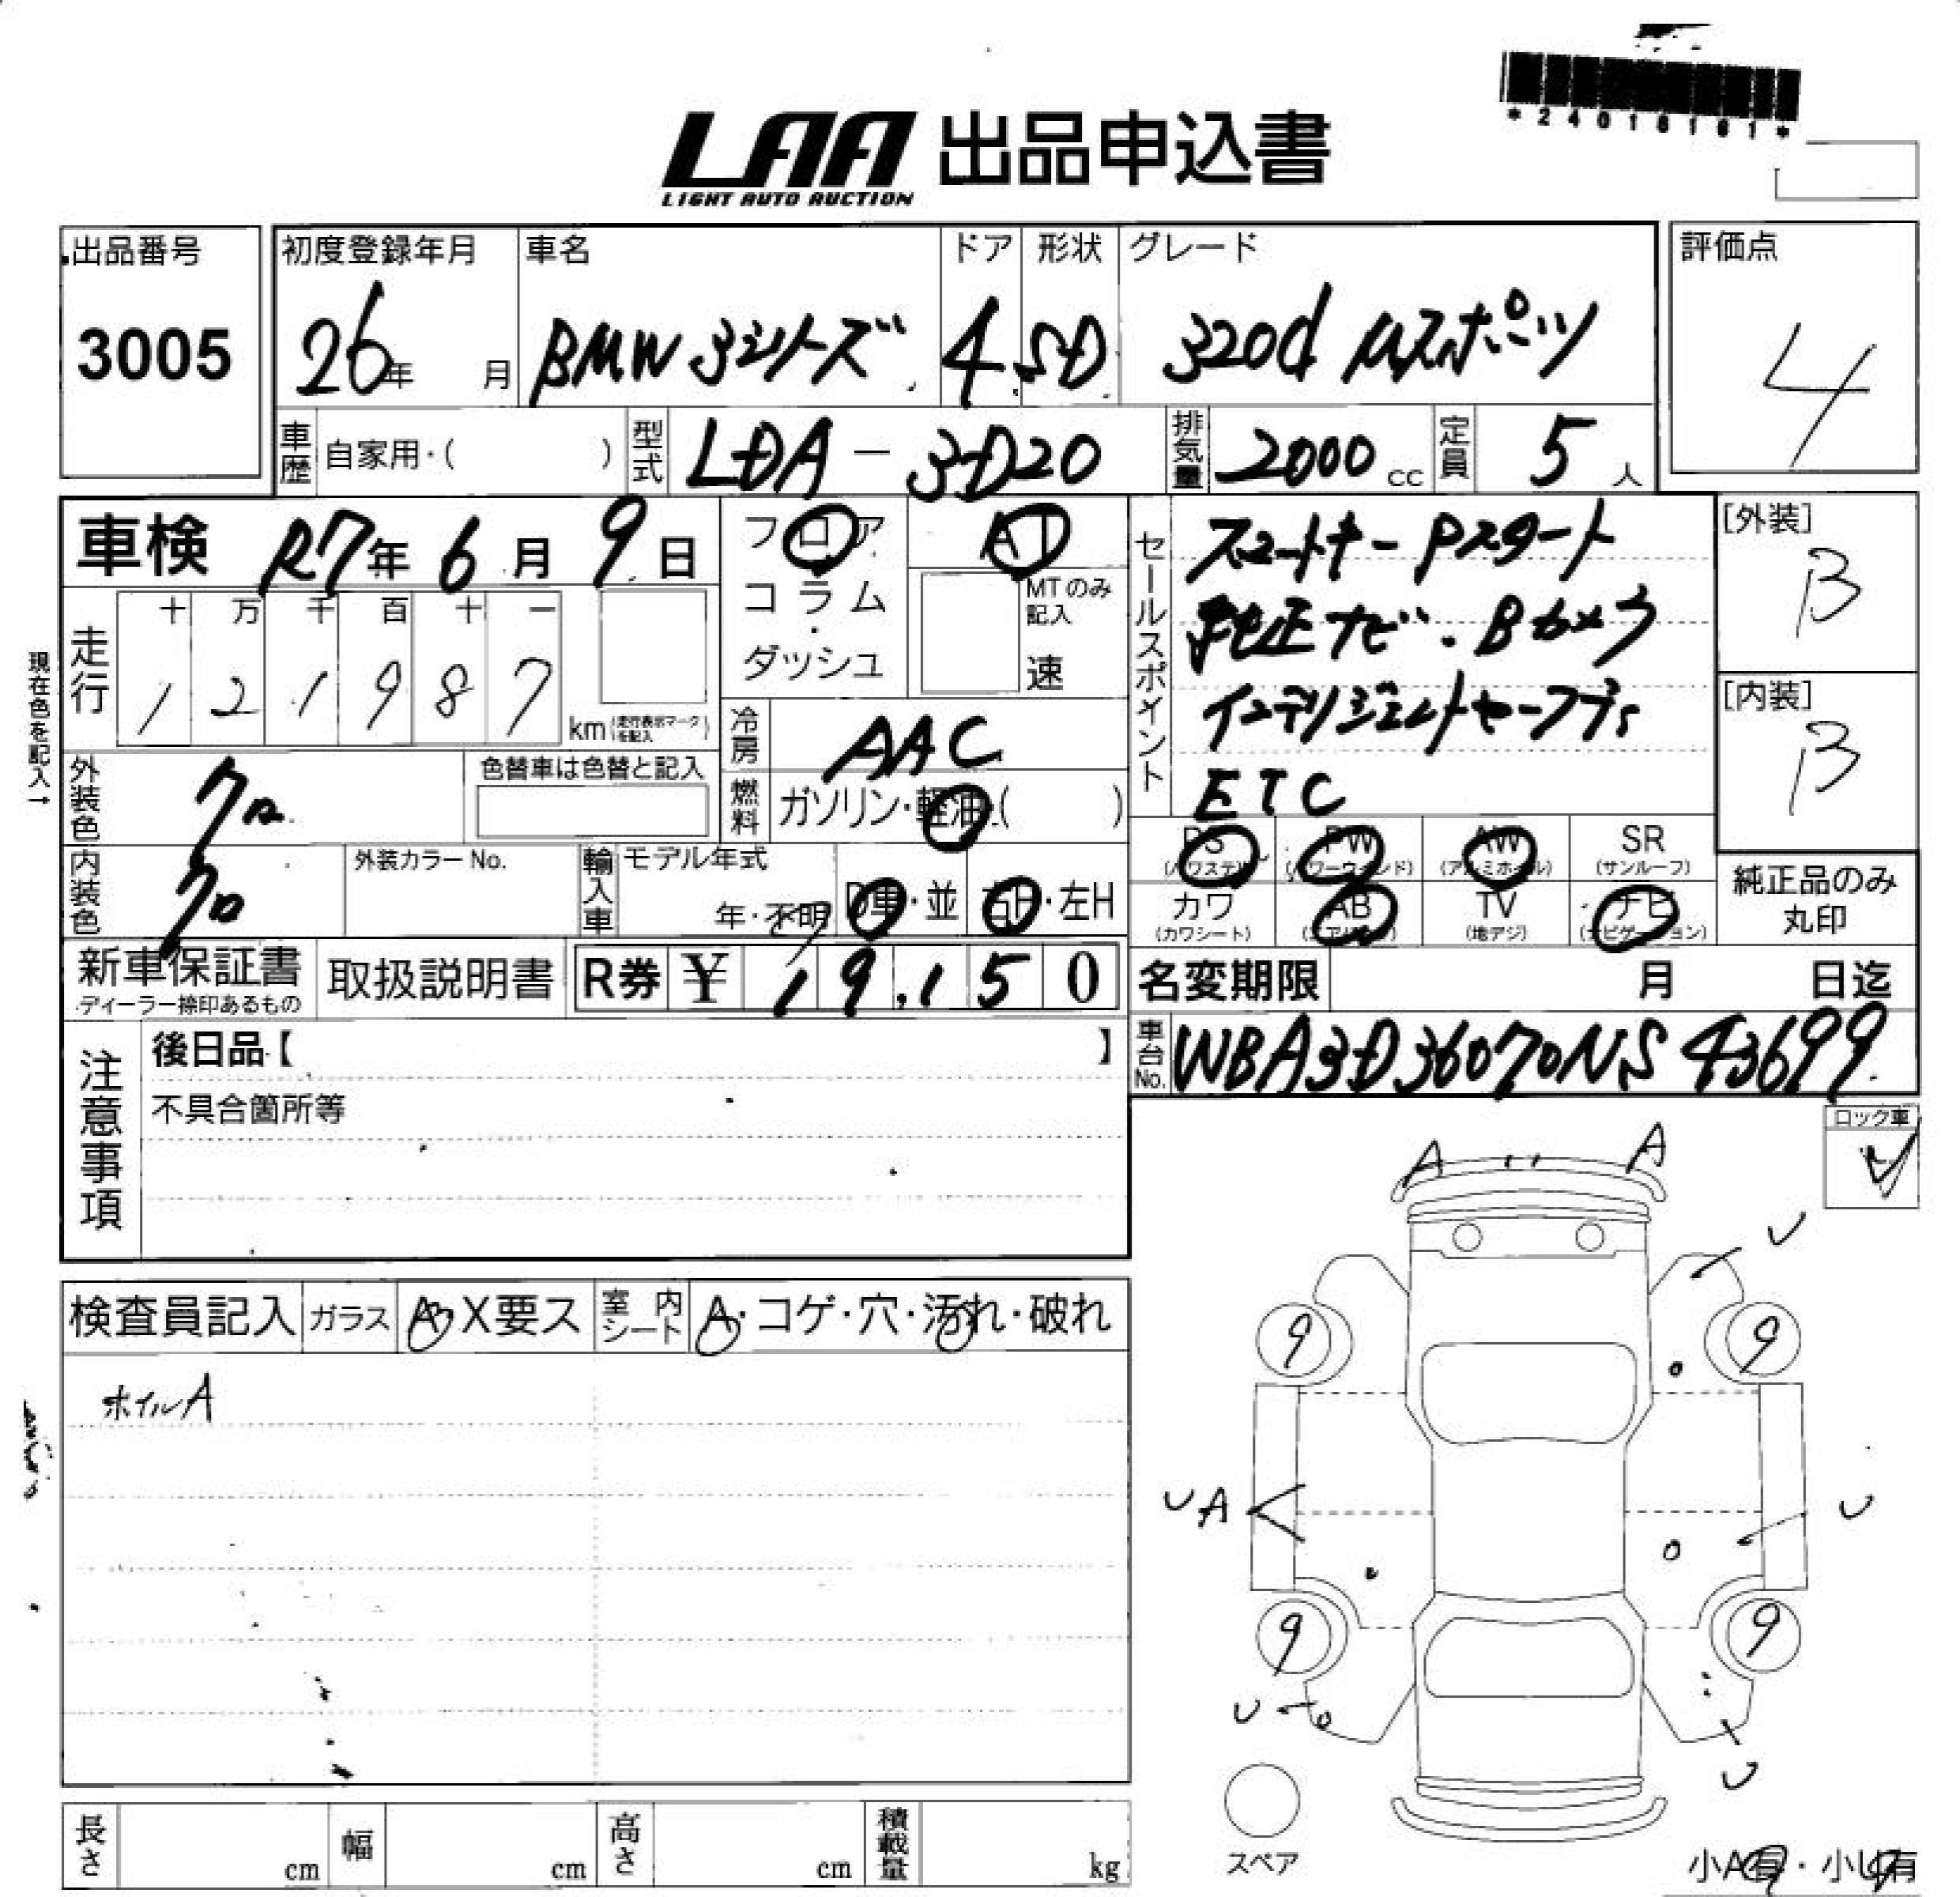 *24016161*
LAA 出品申込書
LIGHT AUTO AUCTION
出品番号
3005
初度登録年月
26年 月
車名
BMW 3シリーズ
ドア
4
形状
SD
グレード
320d Mスポーツ
評価点
4
車歴 自家用・( )
型式 LDA-3D20
排気量 2000 cc
定員 5 人
車検 R7年 6月 9日
フロア
コラム・
ダッシュ
AT
MTのみ
記入
速
セールスポイント
スマートキー Pスタート
純正ナビ・Bカメラ
インテリジェントセーフティ
ETC
[外装]
B
[内装]
B
現在色を記入→
走行
十 万 千 百 十 一
1 2 1 9 8 7
km(走行表示マークを記入)
冷房 AAC
燃料 ガソリン・軽油・( )
外装色 クロ
色替車は色替と記入
内装色 クロ
外装カラーNo.
輸入車
モデル年式
年・不明
D車・並
右H・左H
PS
(パワステ)
PW
(パワーウィンド)
AW
(アルミホイル)
SR
(サンルーフ)
カワ
(カワシート)
AB
(エアバック)
TV
(地デジ)
ナビ
(ナビゲーション)
純正品のみ
丸印
新車保証書
ディーラー捺印あるもの
取扱説明書
R券 ¥ 19,150
名変期限 月 日迄
車台No. WBA3D36070NS43699
注意事項
後日品【 】
不具合箇所等
ロック車
検査員記入
ガラス A・X要ス
室内シート A・コゲ・穴・汚れ・破れ
ホイルA
A A
U
9 9
UA U
9 9
U
U
スペア
長さ cm
幅 cm
高さ cm
積載量 kg
小A有・小U有